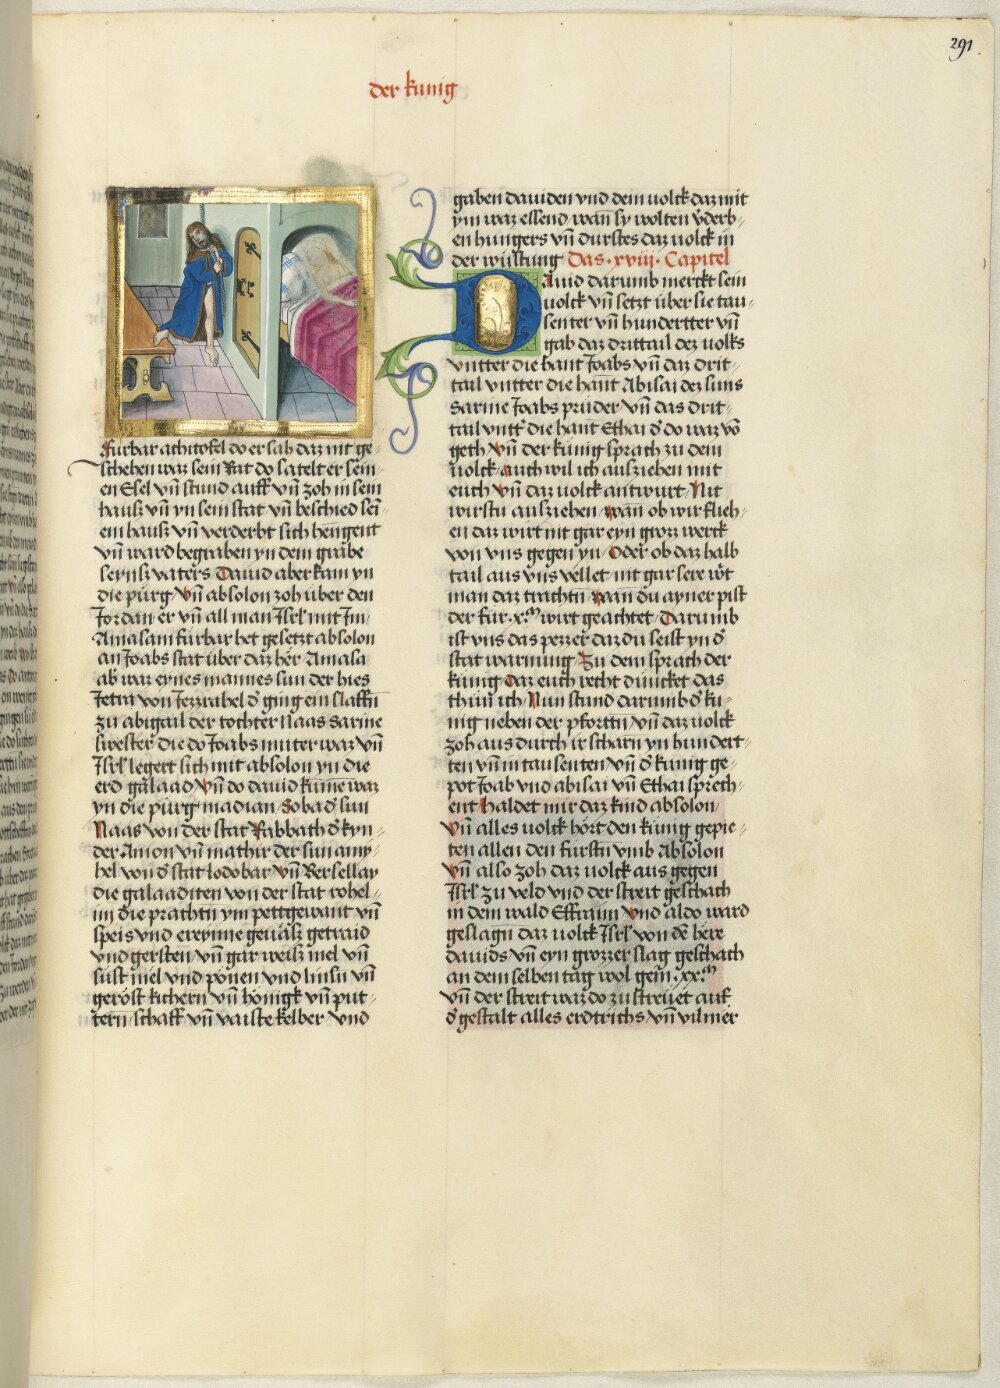 291
der kunig
Furbar achitofel do er sah daz nit ge-
schehen war sein Rat do satelt er sein-
en Esel vn̄ stund auff vn̄ zoh in sein
hausz vn̄ yn sein stat vn̄ beschied sei-
em hausz vn̄ verderbt sich hengent
vn̄ ward begraben yn dem grabe
seynsz vaters Dauid aber kam yn
die pürg Vn̄ absolon zoh über den
Jordan er vn̄ all man Isrl mit Im
Amasam fürbar het gesetzt absolon
an Joabs stat über daz hër Amasa
ab war eynes mannes sun der hies
Jetra von Jezrahel d̄ ging ein slaffn̄
zu abigail der tochter Naas Sarine
swester die do Joabs muter war Vn̄
Isrl legert sich mit absolon yn die
erd galaad Vn̄ do dauid kume waz
yn die pürg madian Soba d̄ sun
Naas von der stat Rabbath d̄ kyn-
der Amon vn̄ mathir der sun amy-
hel von d̄ stat lodobar Vn̄ Bersellay
die galaaditen von der stat rohel-
im die prachtn̄ ym pettgewant vn̄
speis vnd ereyme gevasz getraid
vnd gersten vn̄ gar weisz mel vn̄
süst mel vnd ponen vnd linsn̄ vn̄
geröst kichern vn̄ hönigk vn̄ put-
tern schaff vn̄ vaiste kelber vnd
gaben dauiden vnd dem uolck daz mit
ym waz essend wan̄ sy wolten v̄derb-
en hungers vn̄ durstes daz uolck in
der wüstung Das .xviij. Capitel
Dauid darumb merckt sein
uolck vn̄ setzt über sie tau-
senter vn̄ hundertter vn̄
gab daz drittail dez uolks
vntter die hant Joabs vn̄ daz drit-
tail vntter die hant Abisai dez suns
Sarine Joabs prüder vn̄ das drit-
tail vntt' die hant Ethai d̄ do war vō
geth Vn̄ der künig sprach zu dem
uolck Auch wil ich ausziehen mit
euch Vn̄ daz uolck antwurt Nit
wirstu ausziehen wan ob wir flieh-
en daz wirt nit gar eyn grozz werck
von vns gegen yn Oder ob daz halb
tail aus vns vellet nit gar sere w̄t
man daz trachtn̄ wan du ayner pist
der für .x.ᵐ wirt geachtet Darumb
ist vns das pezzer daz du seist yn d̄
stat warnung Zu dem sprach der
künig Daz euch recht duncket das
thun̄ ich Nun stund darumb d̄ ku-
nig neben der pforttn̄ vn̄ daz uolck
zoh aus durch ir scharn yn hundert-
ten vn̄ in tausenten vn̄ d̄ künig ge-
pot Joab vnd abisai vn̄ Ethai sprech-
ent Haldet mir daz kind absolon
Vn̄ alles uolck hört den künig gepie-
ten allen den fürstn̄ vmb Absolon
Vn̄ also zoh daz uolck aus gegen
Isrl zu veld vnd der streit geschach
in dem wald Effraim Vnd aldo ward
geslagn̄ daz uolck Isrl von dē here
dauids vn̄ eyn grozzer slag geschach
an dem selben tag wol gein .xx.ᵐ
Vn̄ der streit waz do zu streüet auf
d̄ gestalt alles erdtrichs vn̄ vil mer